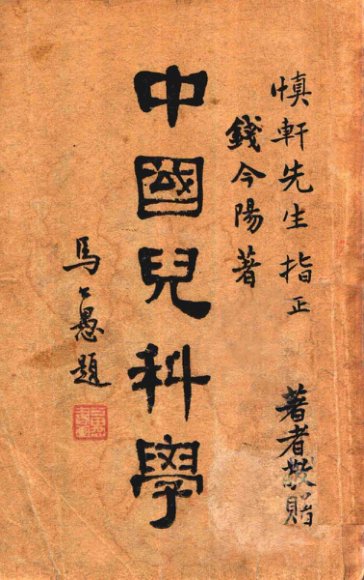 慎軒先生指正
著者敬贈
錢今陽著
中國兒科學
馬公愚題